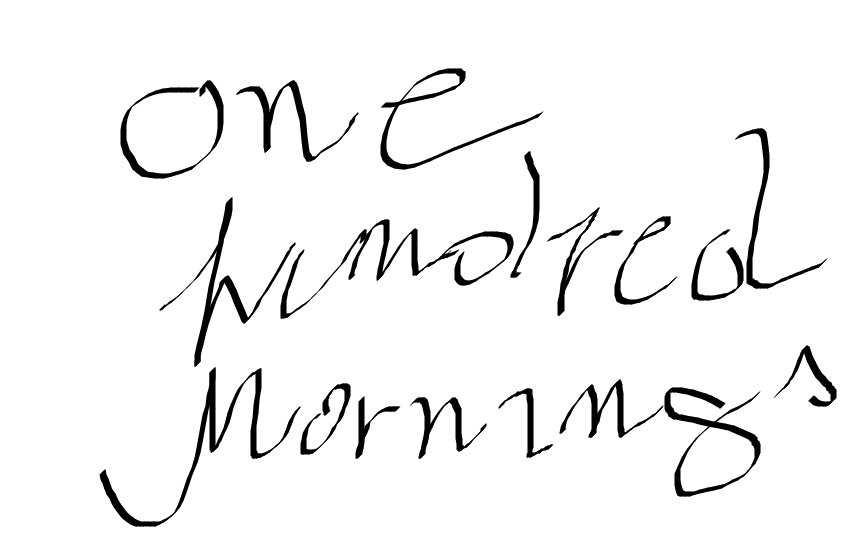 One
hundred
Mornings